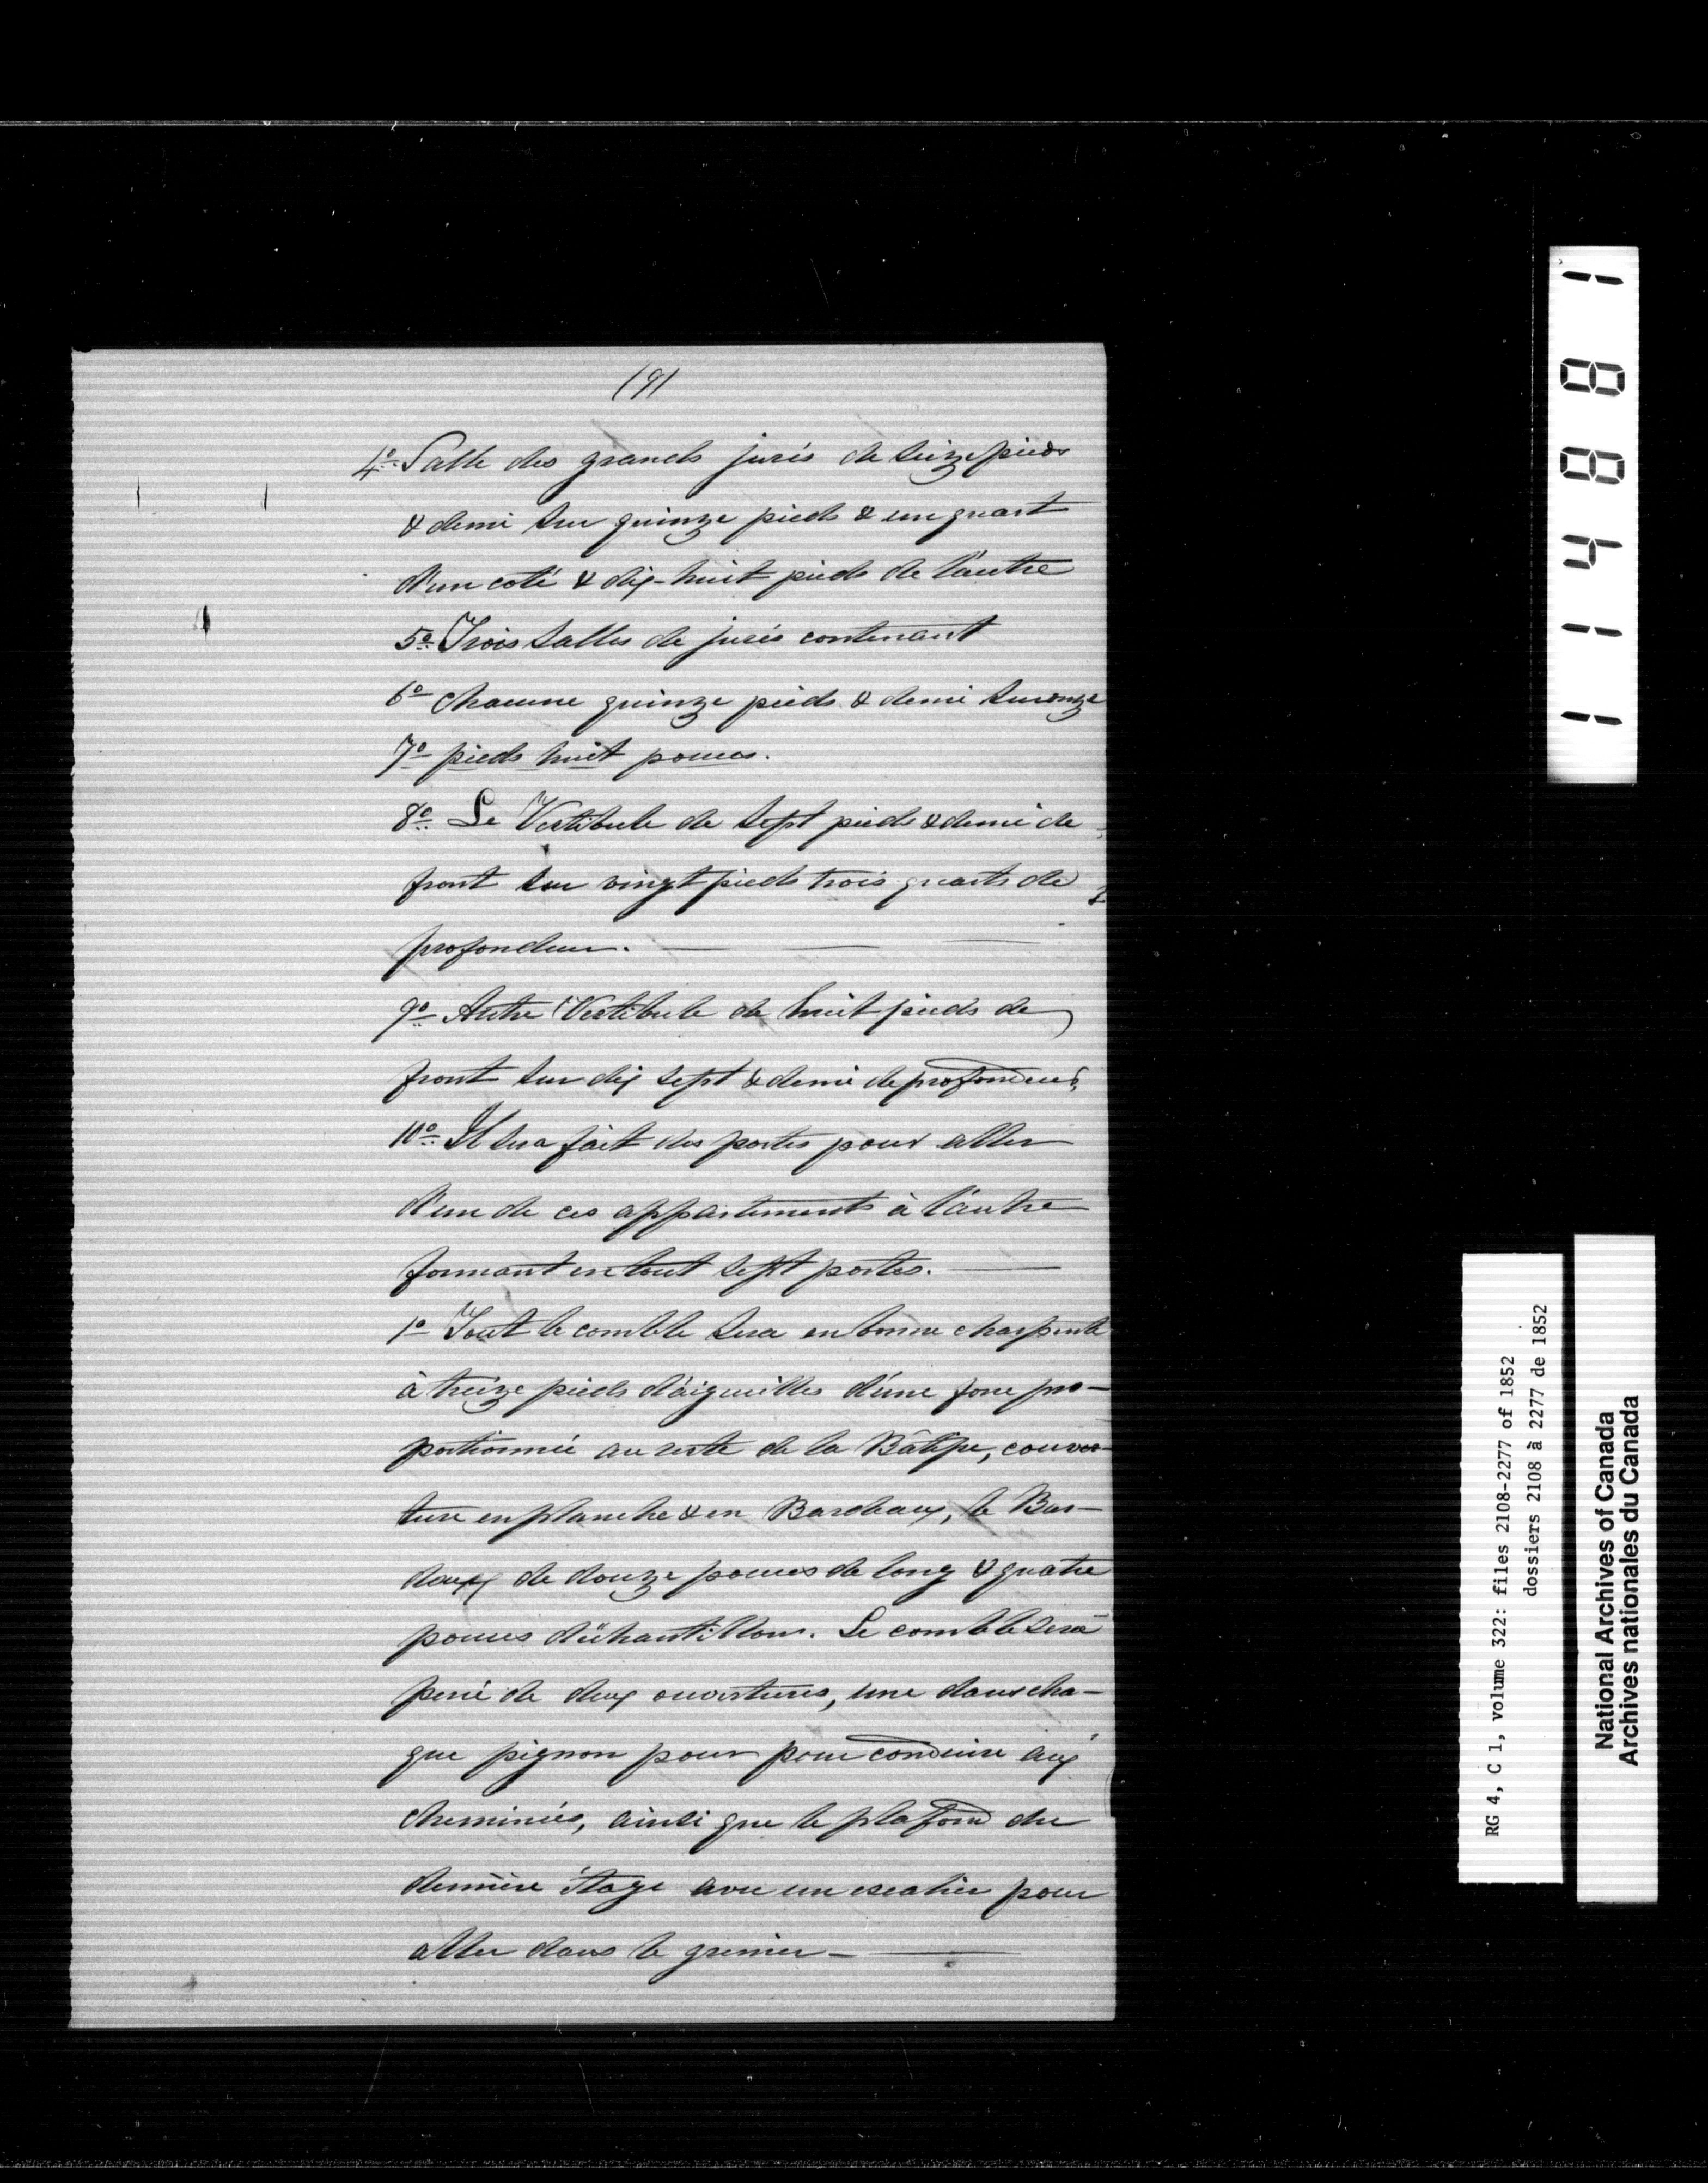 (9)
4º Salle des grands jurés de seize pieds
& demi sur quinze pieds & un quart
d'un coté & dix-huit pieds de l'autre
5º Trois salles de jurés contenant
6º chacune quinze pieds & demi sur onze
7º pieds huit pouces.
8º Le Vestibule de sept pieds & demi de
front sur vingt pieds trois quarts de
profondeur.
9º Autre Vestibule de huit pieds de
front sur dix sept & demi de profondeur,
10º Il sera fait des portes pour aller
d'un de ces appartements à l'autre
formant en tout sept portes.
1º Tout le comble sera en bonne charpente
à treize pieds d'aiguilles d'une force pro-
portionnée au reste de la Bâtisse, couver-
ture en planche & en Bardeaux, le Bar-
deaux de douze pouces de long & quatre
pouces d'échantillon. Le comble sera
percé de deux ouvertures, une dans cha-
que pignon pour pour conduire aux
cheminées, ainsi que le plafond du
dernière étage avec un escalier pour
aller dans le grenier -
114881
RG 4, C 1, volume 322: files 2108-2277 of 1852
dossiers 2108 à 2277 de 1852
National Archives of Canada
Archives nationales du Canada